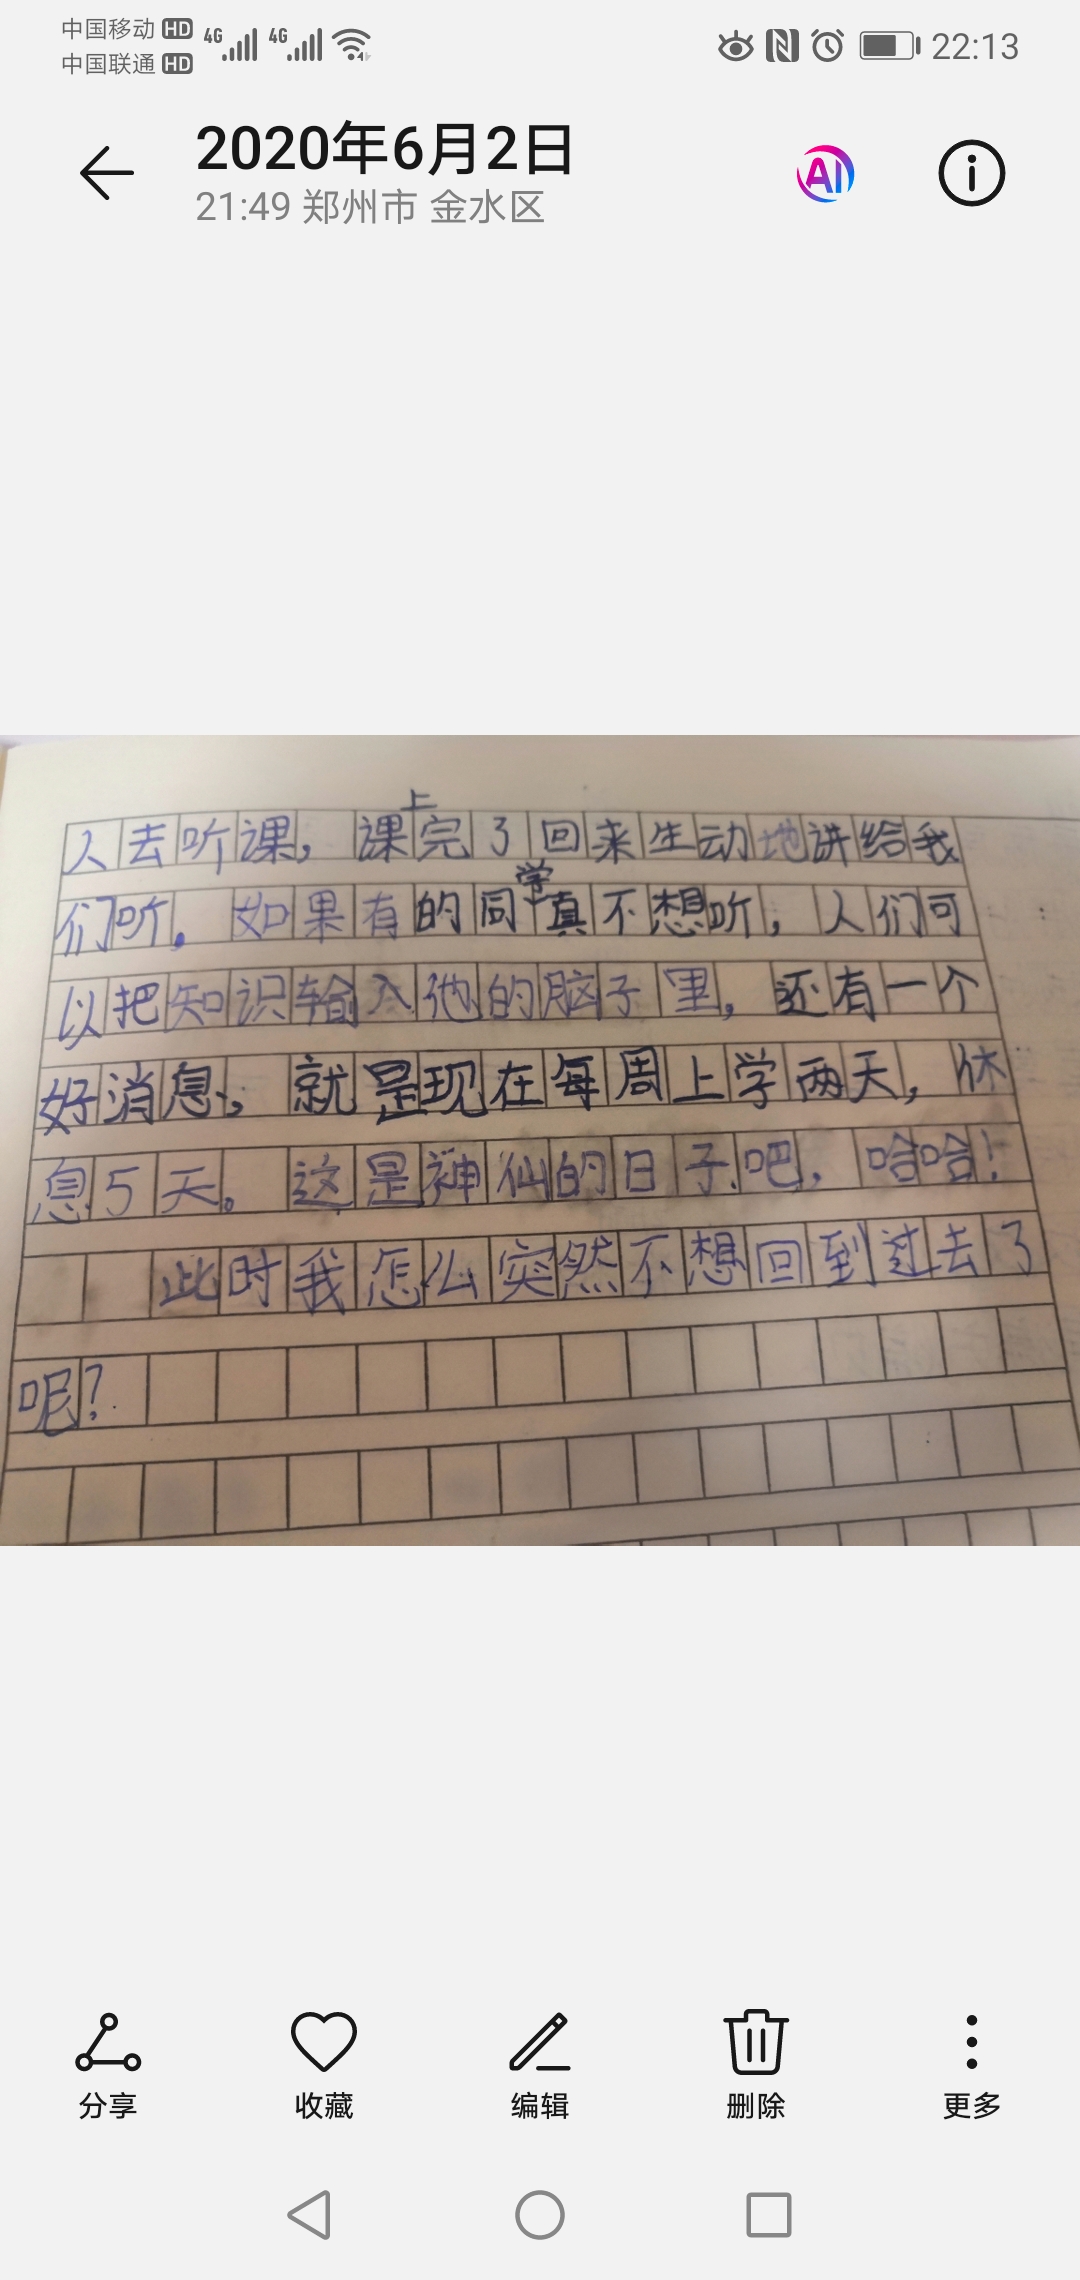 中国移动 HD 4G 4G
中国联通 HD
22:13
2020年6月2日
AI
21:49 郑州市 金水区
上
人去听课，课完了回来生动地讲给我
学
们听。如果有的同真不想听，人们可
以把知识输入他的脑子里，还有一个
好消息，就是现在每周上学两天，休
息5天。这是神仙的日子吧，哈哈！
此时我怎么突然不想回到过去了
呢？
分享
收藏
编辑
删除
更多